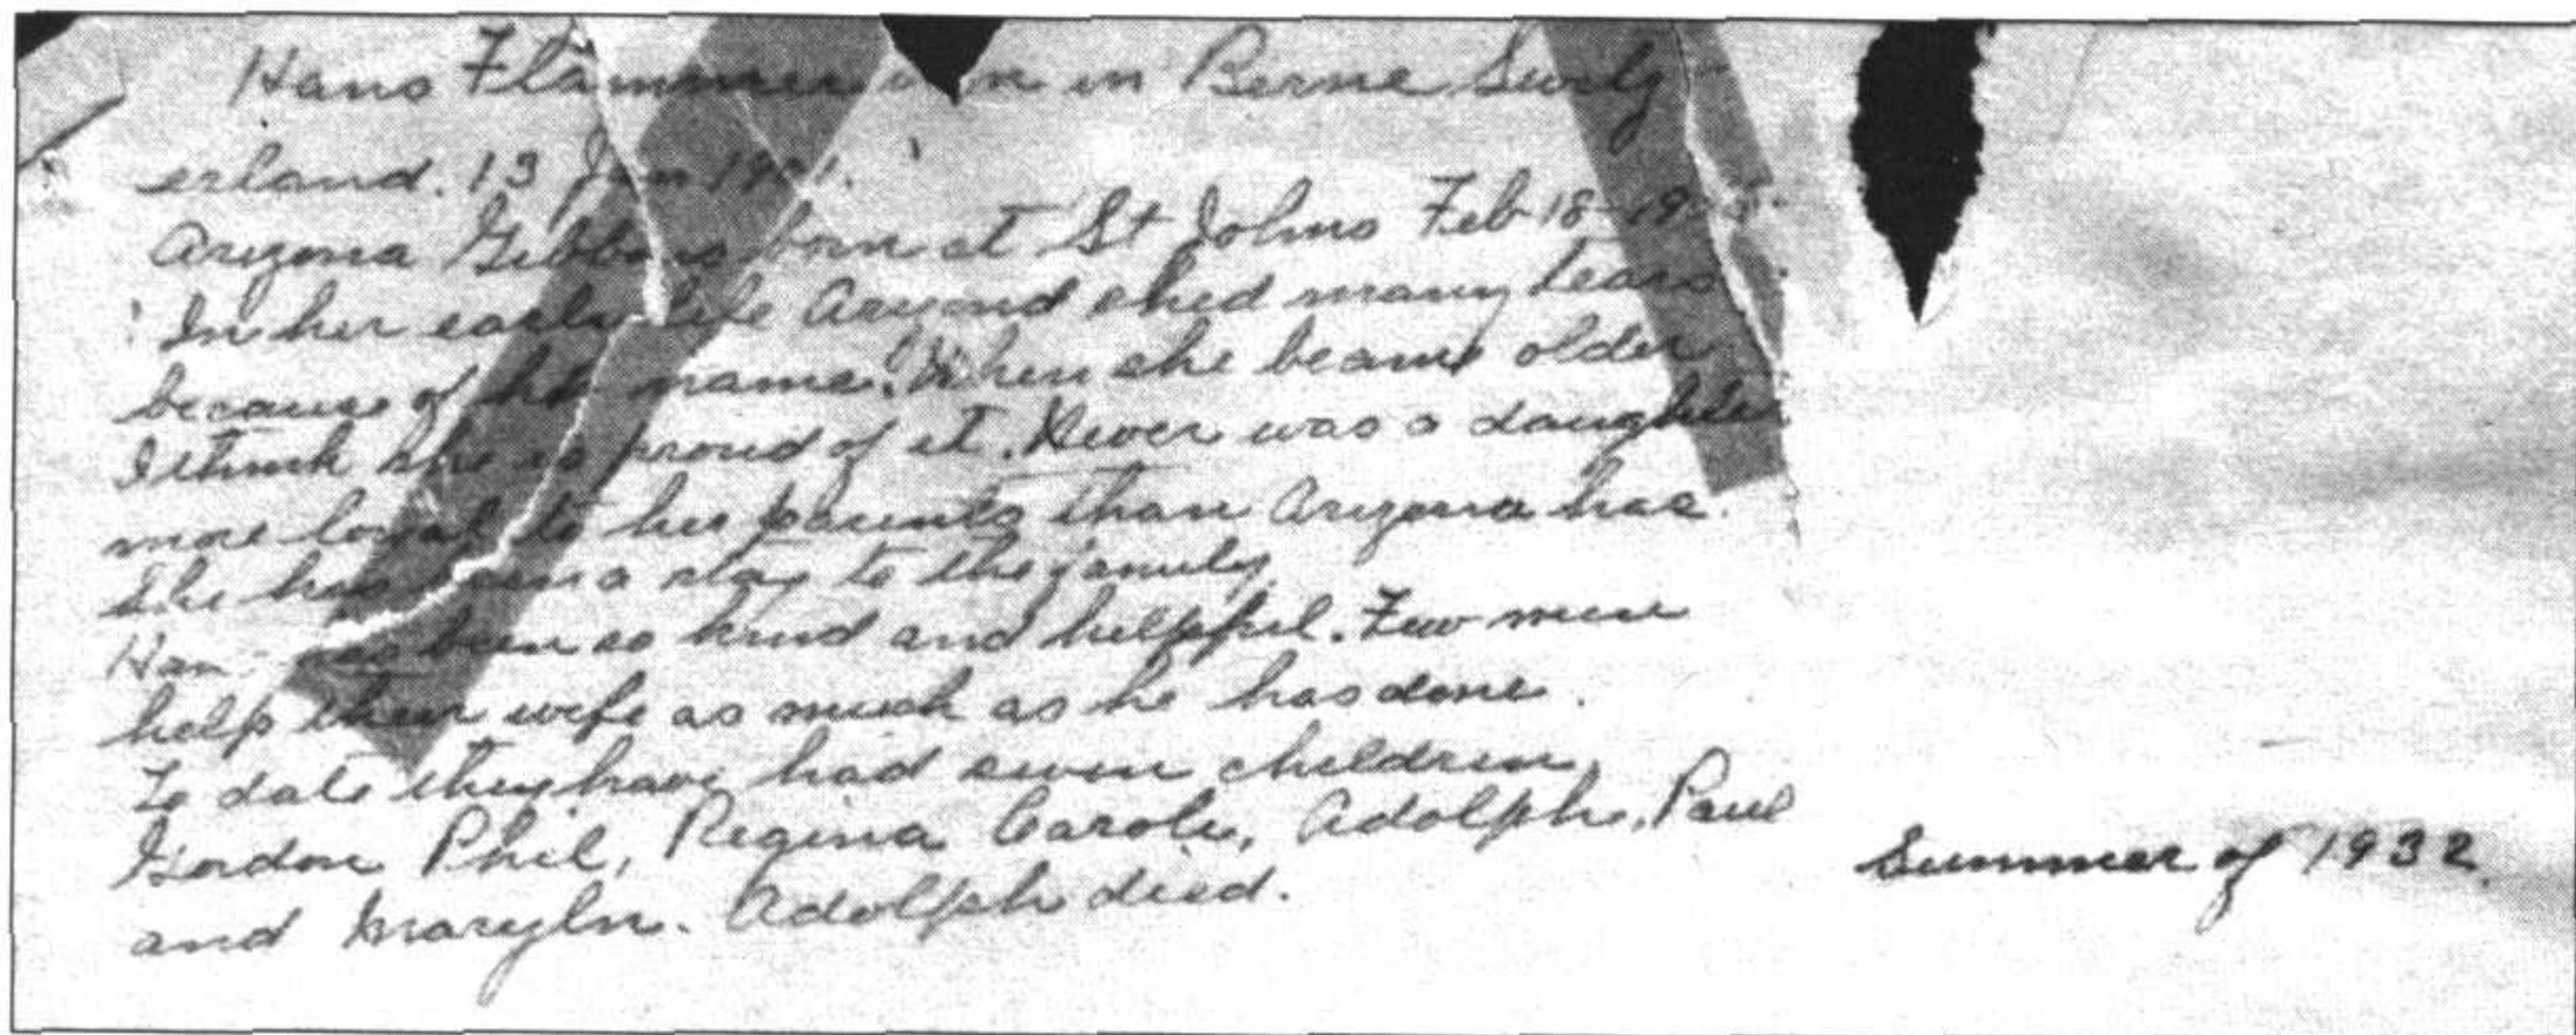 Hans Flammer in Berne Switz-
erland. 13 Jan
Arizona Gibbons born at St Johns Feb 18-19
In her early life shed many tears
because of her name. When she beame older
I think she is proud of it. Never was a daughter
more loyal to her parents than Arizona has.
She has been a stay to the family
Han has been so kind and helpful. Few men
help their wife as much as he has done.
To date they have had seven children,
Gordon Phil, Regina Carole, Adolph, Paul
and Maryln. Adolph died.
Summer of 1932